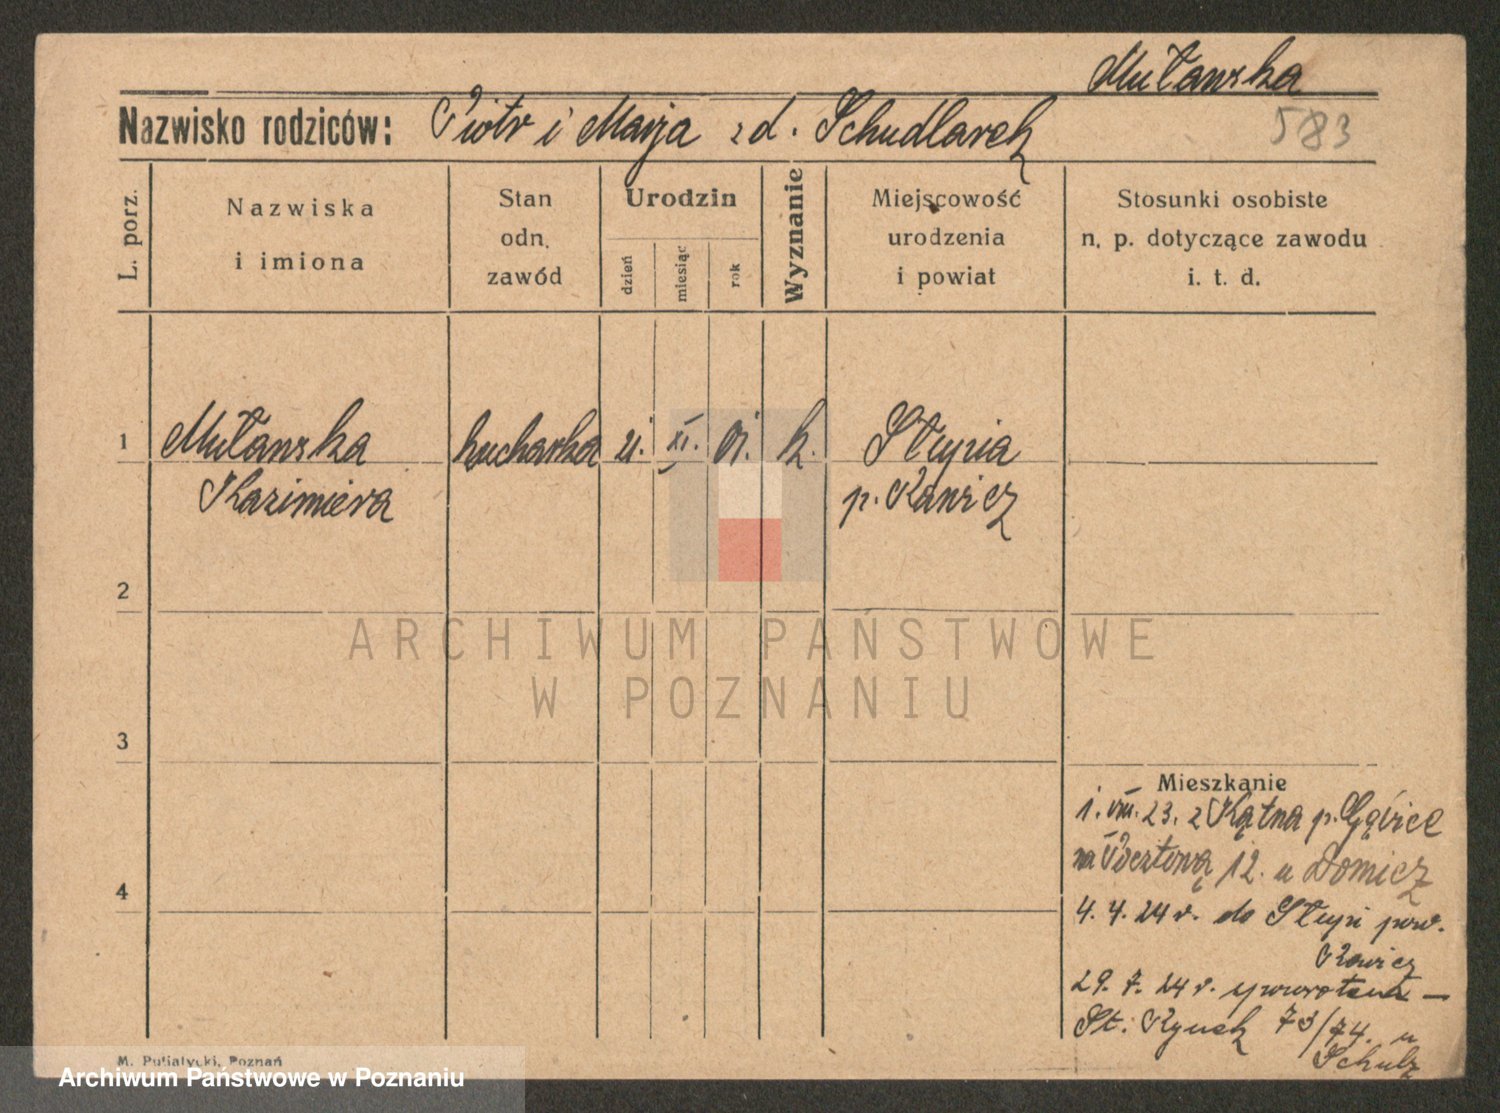 Mułanska
Nazwisko rodziców: Piotr i Marja zd. Schudlarek
583
L. porz.
Nazwiska
i imiona
Stan
odn.
zawód
Urodzin
dzień
miesiąc
rok
Wyznanie
Miejscowość
urodzenia
i powiat
Stosunki osobiste
n. p. dotyczące zawodu
i. t. d.
1 Mułanska kucharka 21. XI. 01. k. Słupia
Kazimiera p. Rawicz
2
ARCHIWUM PAŃSTWOWE
W POZNANIU
3
Mieszkanie
1. VIII. 23. z Kątna p.
na 12. u Domicz
4
4. 4. 24 r. do Słupi pow.
Rawicz
29. 7. 24 r. z powrotem —
St. Rynek 73/74. u
Schulz
M. Putiatycki, Poznań
Archiwum Państwowe w Poznaniu